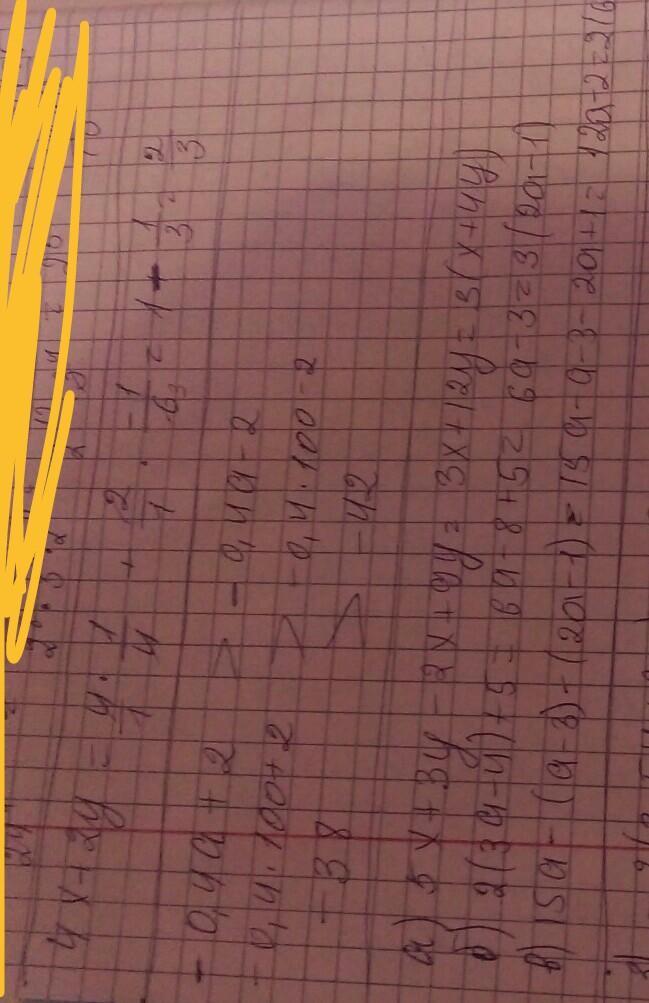 4x + 2y = 4/1 · 1/4 + 2/1 · -1/6 3 = 1 - 1/3 = 2/3
- 0,4a + 2 > - 0,4a - 2
- 0,4 · 100 + 2 > - 0,4 · 100 - 2
- 38 > - 42
а) 5x + 3y - 2x + 9y = 3x + 12y = 3(x + 4y)
б) 2(3a - 4) + 5 = 6a - 8 + 5 = 6a - 3 = 3(2a - 1)
в) 15a - (a - 3) - (2a - 1) = 15a - a - 3 - 2a + 1 = 12a - 2 = 2(6